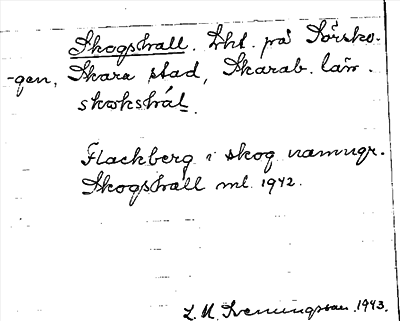 Skogshall. Lht. på Norsko-
-gen, Skara stad, Skarab. län.
skokshál.
Flackberg i skog namngr.
Skogshall ml. 1942.
L. M. Svenungsson. 1943.